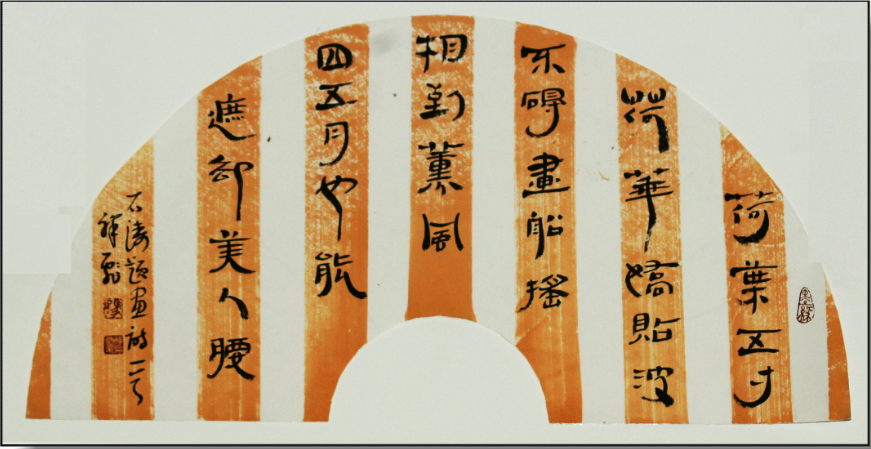 荷葉五寸
荷華嬌貼波
不碍畫船搖
相到薰風
四五月也能
遮卻美人腰
石濤題畫詩一首